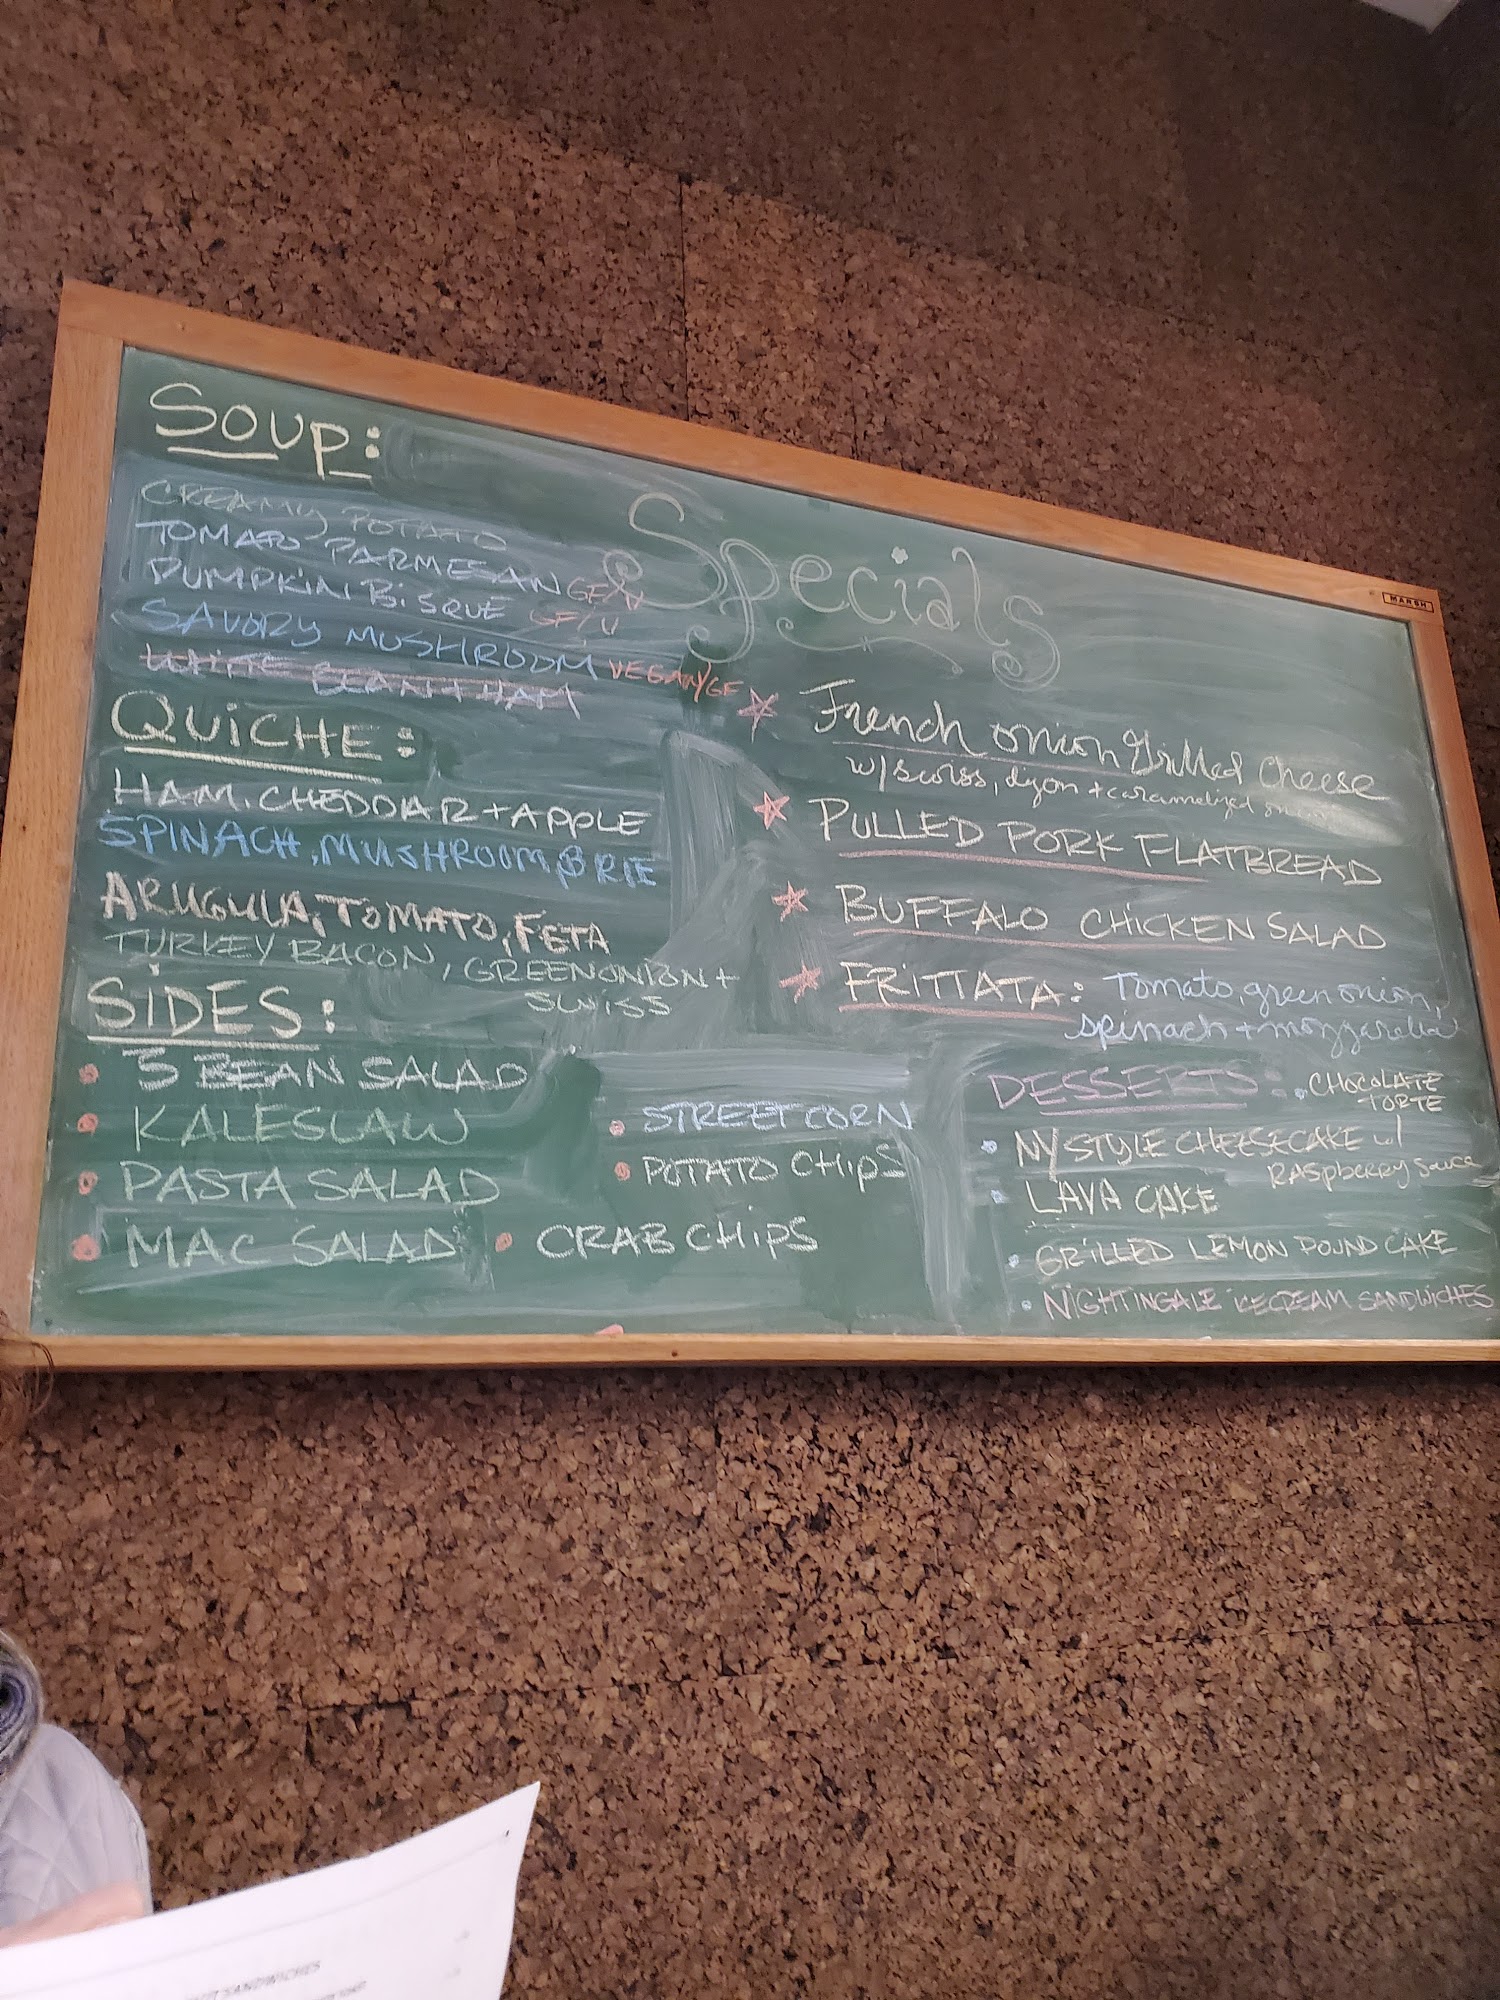 SOUP:
CREAMY POTATO
TOMATO PARMESAN GF/V
PUMPKIN BISQUE GF/V
SAVORY MUSHROOM VEGAN/GF
WHITE BEAN + HAM
QUICHE:
HAM, CHEDDAR + APPLE
SPINACH, MUSHROOM, BRIE
ARUGULA, TOMATO, FETA
TURKEY BACON, GREEN ONION +
SWISS
SIDES:
KALESLAW
PASTA SALAD
MAC SALAD
STREET CORN
POTATO CHIPS
CRAB CHIPS
BEAN SALAD
Specials
MARSH
French onion Grilled Cheese
w/ swiss, dijon + caramelized
PULLED PORK FLATBREAD
BUFFALO CHICKEN SALAD
FRITTATA: Tomato, green onion,
spinach + mozzarella
DESSERTS: CHOCOLATE
TORTE
NY STYLE CHEESECAKE w/
RASPBERRY SAUCE
LAVA CAKE
GRILLED LEMON POUND CAKE
NIGHTINGALE ICECREAM SANDWICHES
SANDWICHES